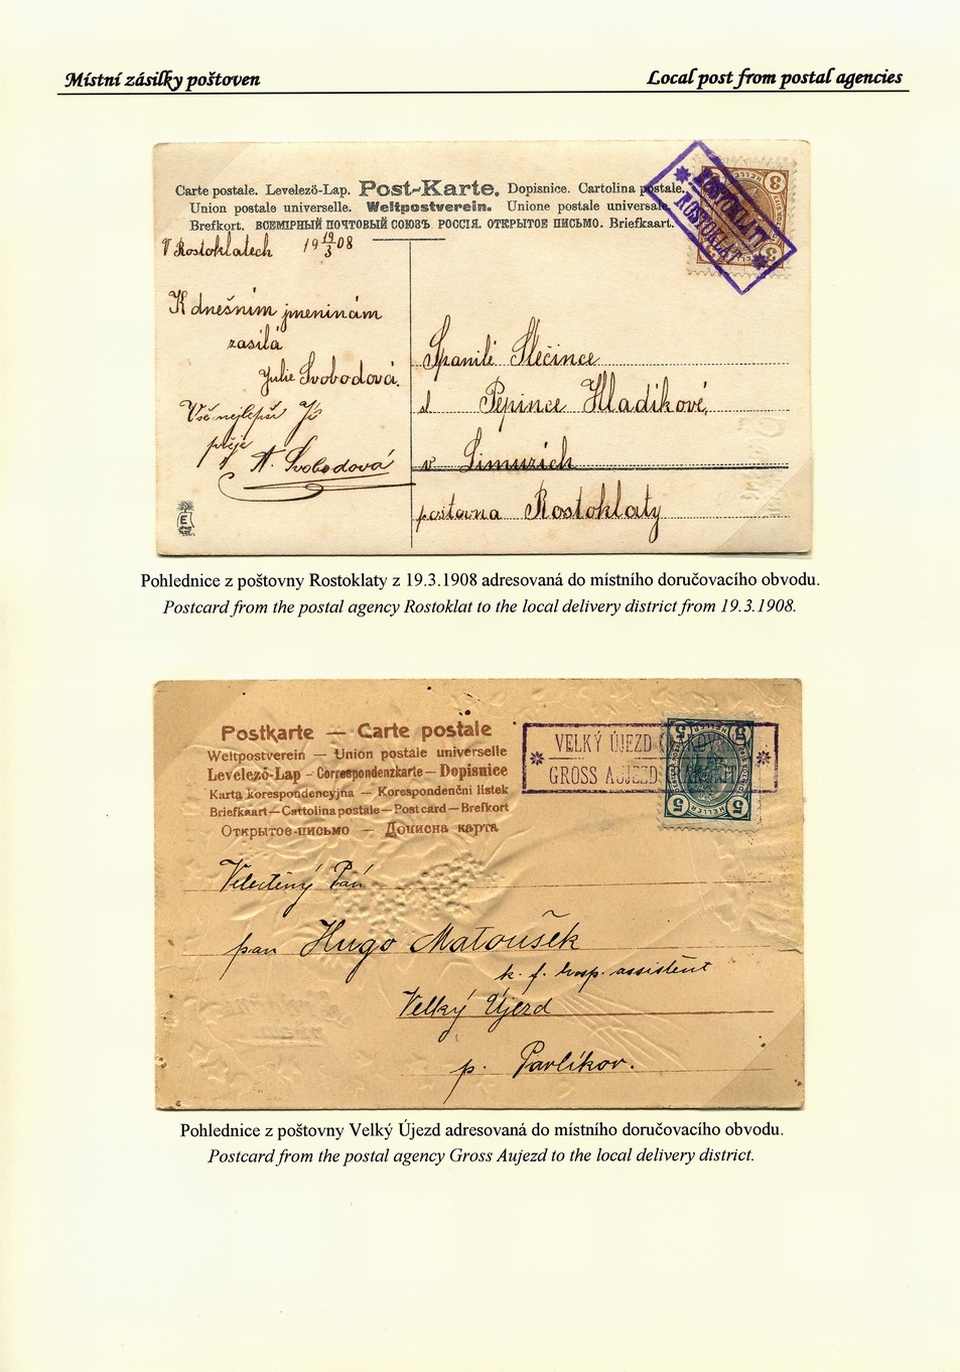 Místní zásilky poštoven
Local post from postal agencies
Carte postale. Levelező-Lap. Post-Karte. Dopisnice. Cartolina postale.
Union postale universelle. Weltpostverein. Unione postale universale.
Brefkort. ВСЕМІРНЫЙ ПОЧТОВЫЙ СОЮЗЪ. РОССІЯ. ОТКРЫТОЕ ПИСЬМО. Briefkaart.
ROSTOKLATY
ROSTOKLAT
3 HELLER 3
V Rostoklatech 19 19/3 08
K dnešním jmeninám
zasílá
Julie Svobodová.
Vše nejlepší Jí
přeje
A. Svobodová
Spanilé Slečince
sl Pepince Hladíkové,
v Limuzích
poštovna Rostoklaty
E
Pohlednice z poštovny Rostoklaty z 19.3.1908 adresovaná do místního doručovacího obvodu.
Postcard from the postal agency Rostoklat to the local delivery district from 19.3.1908.
Postkarte — Carte postale
Weltpostverein — Union postale universelle
Levelező-Lap — Correspondenzkarte — Dopisnice
Karta korespondencyjna — Korespondenčni listek
Briefkaart — Cartolina postale — Post card — Brefkort
Открытое письмо — Дописна карта
VELKÝ ÚJEZD
GROSS AUJEZD
5 HELLER 5
Velectěný Pán
pan Hugo Matoušek
k. f. hosp. assistent
Velký Újezd
p. Pavlíkov.
Pohlednice z poštovny Velký Újezd adresovaná do místního doručovacího obvodu.
Postcard from the postal agency Gross Aujezd to the local delivery district.